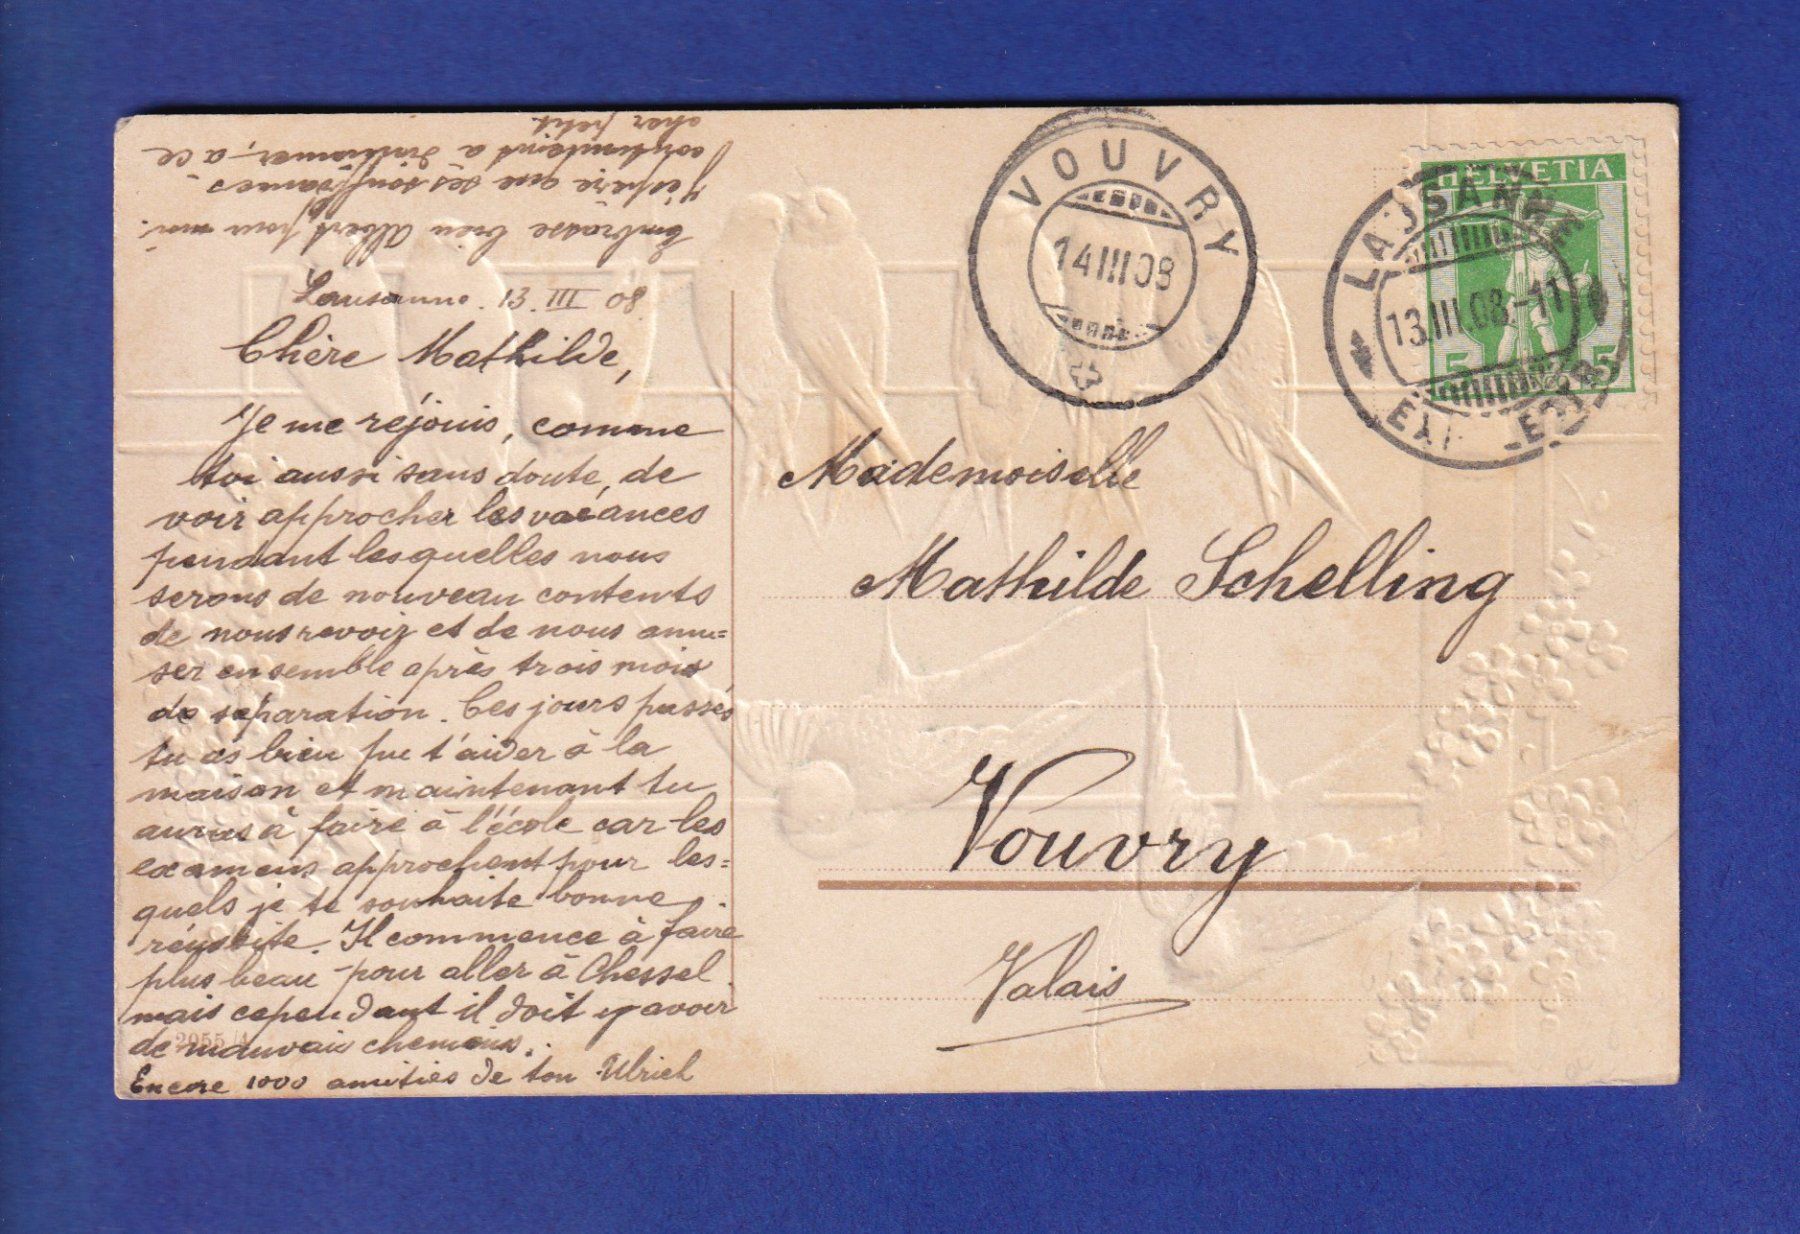 Embrasse bien Albert pour moi.
J'espère que ses souffrances
continuent à diminuer, à ce
cher petit.
Lausanne. 13. III 08.
Chère Mathilde,
Je me réjouis, comme
toi aussi sans doute, de
voir approcher les vacances
pendant lesquelles nous
serons de nouveau contents
de nous revoir et de nous amu=
ser ensemble après trois mois
de séparation. Ces jours passés
tu as bien pu t'aider à la
maison et maintenant tu
auras à faire à l'école car les
examens approchent pour les=
quels je te souhaite bonne
réussite. Il commence à faire
plus beau pour aller à Chessel
mais cependant il doit y avoir
de mauvais chemins.
Encore 1000 amitiés de ton Ulrich
2055/A
VOUVRY
14 III 08
HELVETIA
5 5
LAUSANNE
13.III.08.-11
Mademoiselle
Mathilde Schelling
Vouvry
Valais